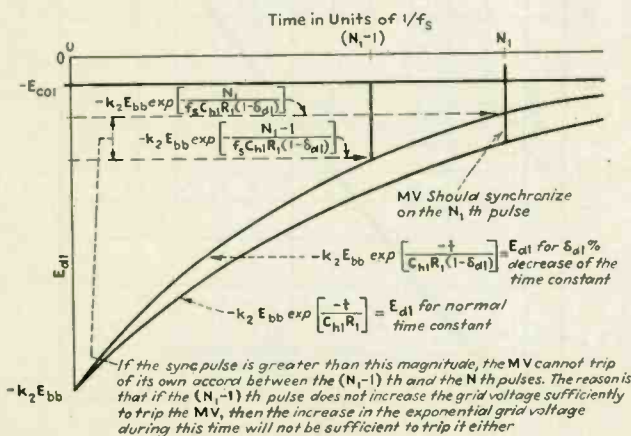 Time in Units of 1/f_s
(N₁-1)
N₁
0
0
-E_co1
-k₂E_bb exp[N₁/f_s C_h1 R_1(1-δ_d1)]
-k₂E_bb exp[-N₁-1/f_s C_h1 R_1(1-δ_d1)]
MV Should synchronize
on the N₁ th pulse
E_d1
-k₂ E_bb exp[-t/C_h1 R_1(1-δ_d1)] = E_d1 for δ_d1%
decrease of the
time constant
-k₂ E_bb exp[-t/C_h1 R_1] = E_d1 for normal
time constant
-k₂E_bb
If the sync pulse is greater than this magnitude, the MV cannot trip
of its own accord between the (N₁-1) th and the N th pulses. The reason is
that if the (N₁-1) th pulse does not increase the grid voltage sufficiently
to trip the MV, then the increase in the exponential grid voltage
during this time will not be sufficient to trip it either